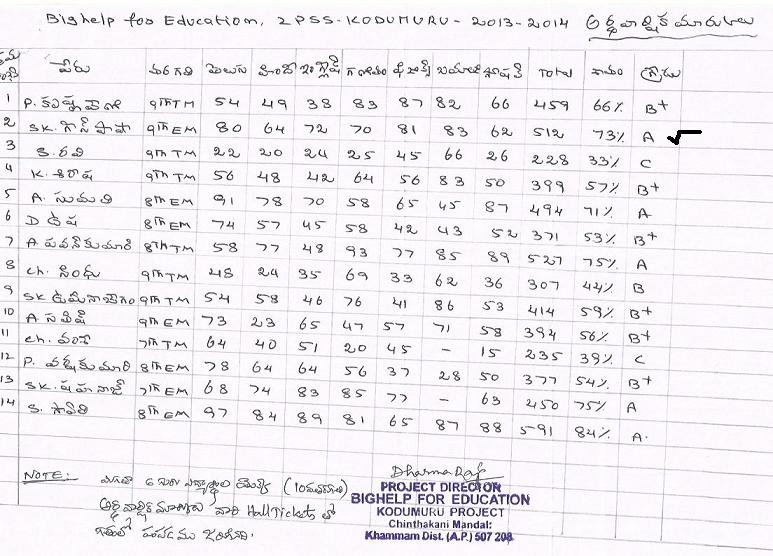 Bighelp for Education, ZPSS-KODUMURU - 2013-2014 అర్థవార్షిక మార్కులు
పేరు తరగతి తెలుగు హిందీ ఇంగ్లీష్ గణితం ఫిజిక్స్ బయాలజీ సోషల్ TOTAL శాతం గ్రేడు
1 P. కృష్ణవేణి 9th TM 54 49 38 83 87 82 66 459 66% B+
2 SK. గౌస్ పాషా 9th EM 80 64 72 70 81 83 62 512 73% A
3 S. రవి 9th TM 22 20 24 25 45 66 26 228 33% C
4 K. శిరీష 9th TM 56 48 42 64 56 83 50 399 57% B+
5 A. సుమతి 8th EM 91 78 70 58 65 45 87 494 71% A
6 D 8th EM 74 57 45 58 42 43 52 371 53% B+
7 A. పవన్ కుమారి 8th TM 58 77 48 93 77 85 89 527 75% A
8 Ch. సింధు 9th TM 48 24 35 69 33 62 36 307 44% B
9 SK. 9th TM 54 58 46 76 41 86 53 414 59% B+
10 A. 9th EM 73 23 65 47 57 71 58 394 56% B+
11 Ch. 7th TM 64 40 51 20 45 - 15 235 39% C
12 P. 8th EM 78 64 64 56 37 28 50 377 54% B+
13 SK. షహనాజ్ 7th EM 68 74 83 85 77 - 63 450 75% A
14 S. 8th EM 97 84 89 81 65 87 88 591 84% A.
NOTE: మిగతా 6 గురు విద్యార్థుల యొక్క (10వతరగతి)
అర్థవార్షిక మార్కులు వారి Halltickets తో
గతంలో పంపడము జరిగినది.
Dharma Raj
PROJECT DIRECTOR
BIGHELP FOR EDUCATION
KODUMURU PROJECT
Chinthakani Mandal:
Khammam Dist. (A.P.) 507 208